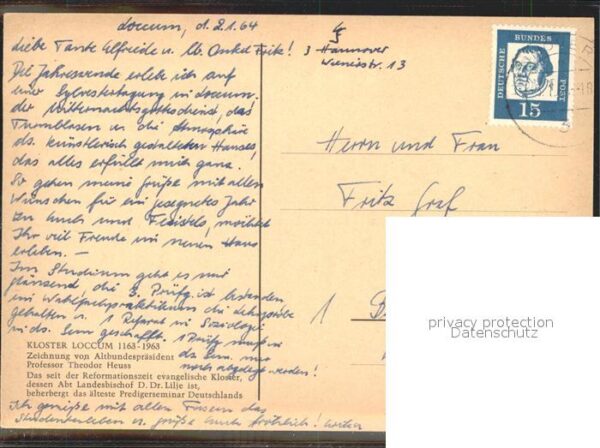 Loccum, d. 2.1.64
Liebe Tante Elfriede u. lb. Onkel Fritz!
3 Hannover
Wieniestr. 13
Die Jahreswende erlebe ich auf
einer Sylvestertagung in Loccum.
der Mitternachtsgottesdienst, das
Turmblasen u. die Atmosphäre
ds. künstlerisch gestalteten Hauses,
das alles erfüllt mich ganz!
So gehen meine Grüße mit allen
Wünschen für ein gesegnetes Jahr
zu Euch und
Ihr viel Freude im neuen Haus
erleben. —
Im Studium geht es mir
glänzend, die 3. Prüfg. ist bestanden
im Wahlfachpraktikum die Lehrprobe
gehalten u. 1 Referat in Soziologie
in ds. Sem geschafft. 1 Prüfg muß in
ds Sem. nur
noch abgelegt werden!
KLOSTER LOCCUM 1163-1963
Zeichnung von Altbundespräsident
Professor Theodor Heuss
Das seit der Reformationszeit evangelische Kloster,
dessen Abt Landesbischof D. Dr. Lilje ist,
beherbergt das älteste Predigerseminar Deutschlands
Ich genieße mit allen Fasern das
Studentenleben u. grüße Euch herzlich!
DEUTSCHE BUNDES POST
15
Herrn und Frau
Fritz Graf
1
privacy protection
Datenschutz